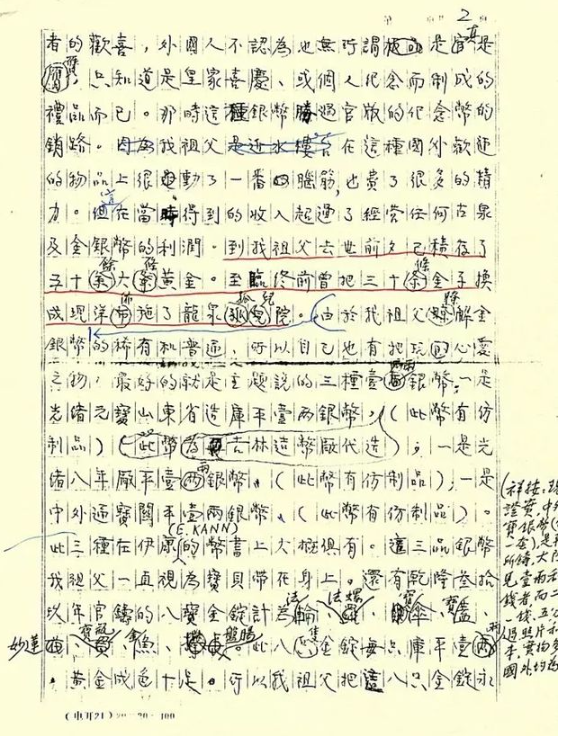 2
者的歡喜，外國人不認為也無所謂是官是
只知道是皇家喜慶、或個人紀念而制成的
禮品而已。那時這種銀幣勝過官版的紀念幣的
銷路。因為我祖父是近水樓台在這種國外歡迎
的物品上很動了一番腦筋，也費了很多的精
力。但在當時得到的收入超過了經營任何古泉
及金銀幣的利潤。到我祖父去世前夕已積存了
五十餘大條黃金。至臨終前曾把三十條金子換
成現洋布施了龍泉孤兒院。由於我祖父瞭解金
銀幣的稀有和普通，所以自己也有把玩心愛
之物，最好的就是主題說的三種壹兩銀幣，一是
光緒元寶山東省造庫平壹兩銀幣，（此幣有仿
制品）（此幣為吉林造幣廠代造）；一是光
緒八年廠平壹兩銀幣，（此幣有仿制品），一是
中外通寶關平壹兩銀幣，（此幣有仿制品）。
(E.KANN)
此三種在伊康的幣書上大概俱有。這三品銀幣
我祖父一直視為寶貝帶在身上。還有乾隆叁拾
玖年官鑄的八寶金錠計為法輪、法螺、寶傘、寶蓋、
妙蓮
魚、盤腸。此八金錠每只庫平壹兩
，黃金成色十足。所以我祖父把這八只金錠永
20×20=400